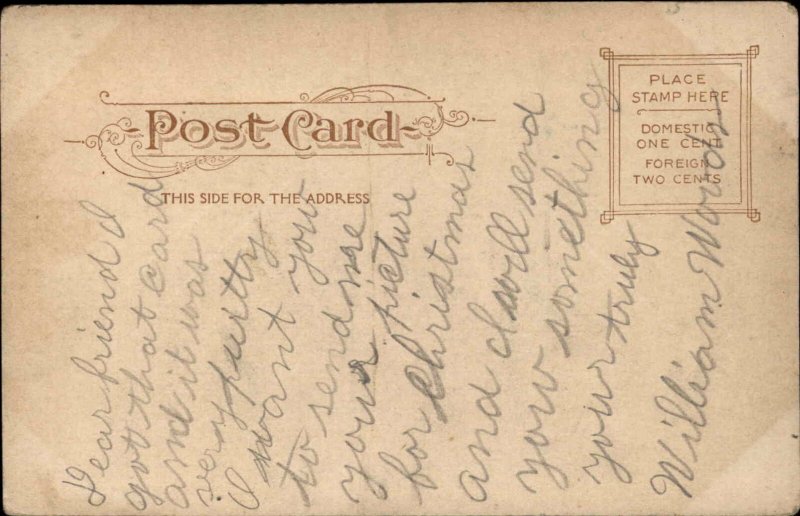 Post Card
THIS SIDE FOR THE ADDRESS
PLACE
STAMP HERE
DOMESTIC
ONE CENT
FOREIGN
TWO CENTS
Dear friend I
got that card
and it was
very purtty
I want you
to send me
your picture
for Christmas
and I will send
you something
your truly
William Woods